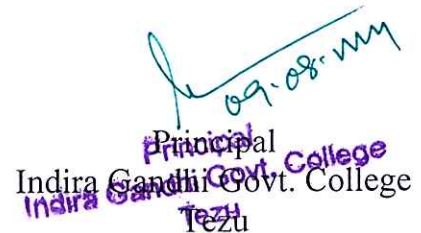 09.08.
Principal
Indira Gandhi Govt. College
Tezu
Principal
Indira Gandhi Govt. College
Tezu